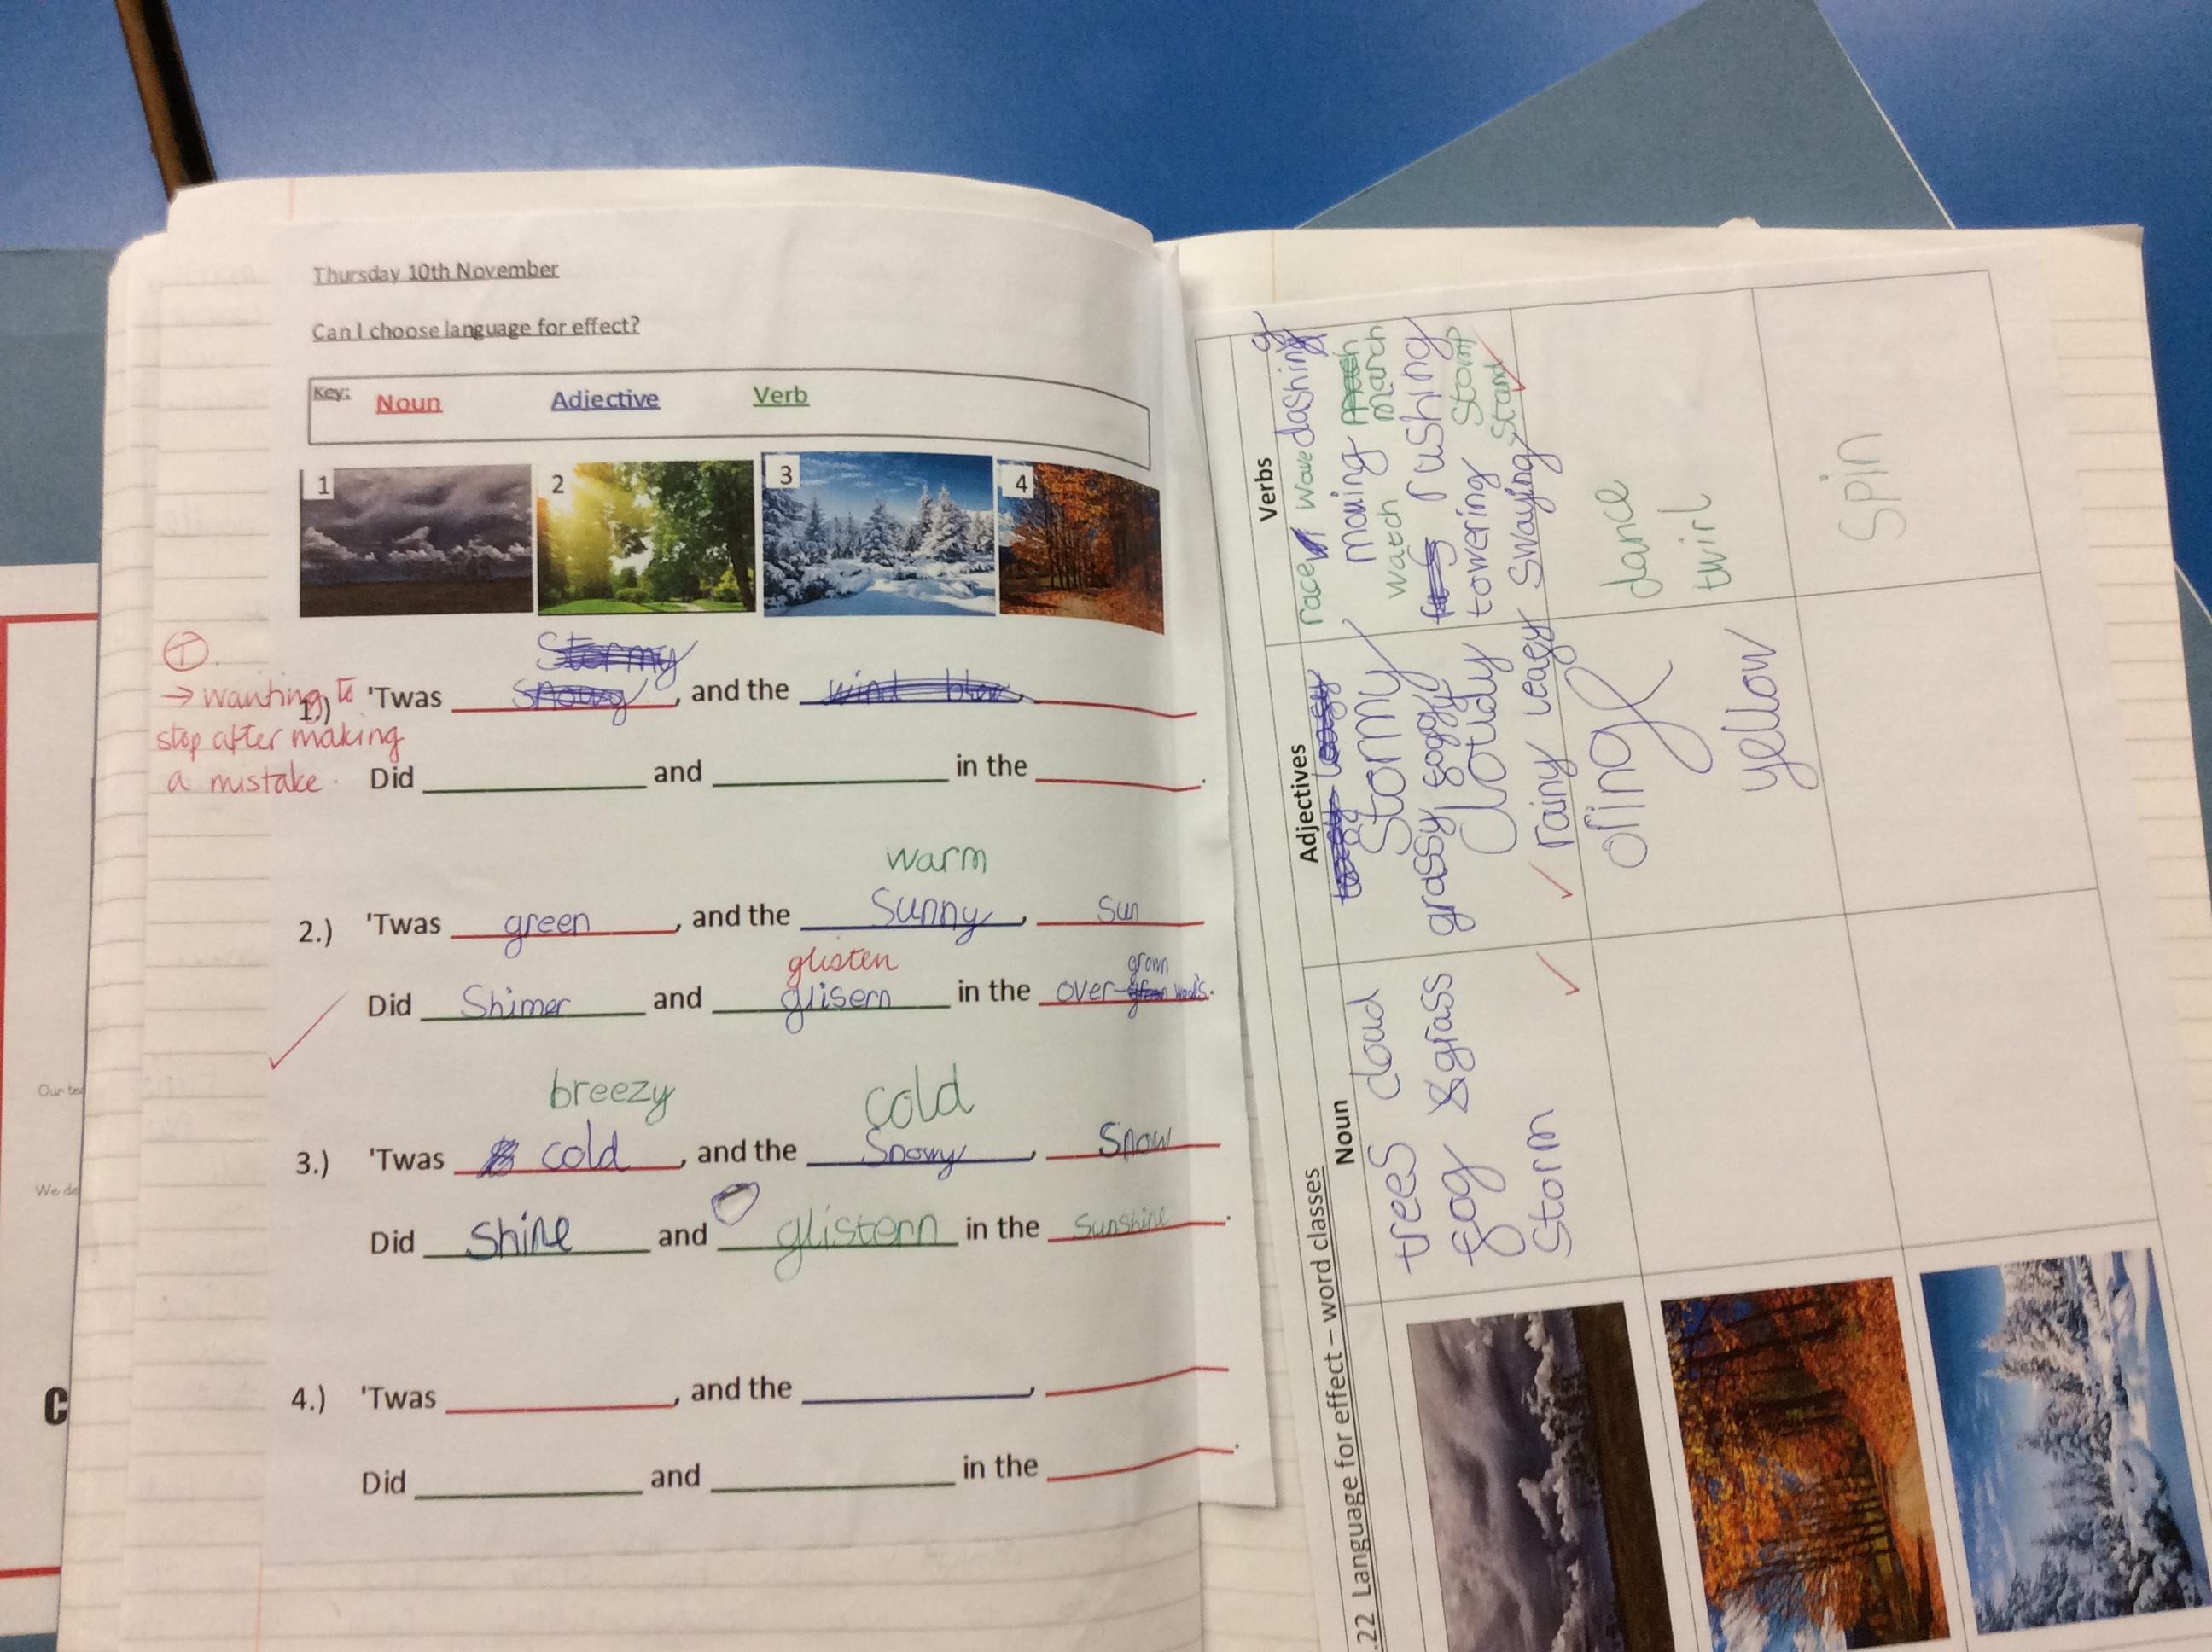 Thursday 10th November
Can I choose language for effect?
Key: Noun Adjective Verb
1 2 3 4
T
→ wanting to
stop after making
a mistake.
Stormy
1.) 'Twas snowy, and the wind blow,
Did and in the .
warm
2.) 'Twas green, and the sunny, sun
glisten grown
Did Shimer and glisern in the over- woods.
breezy cold
3.) 'Twas cold, and the Snowy, Snow
Did Shine and glistenn in the sunshine.
4.) 'Twas , and the ,
Did and in the .
.22 Language for effect – word classes
Noun Adjectives Verbs
trees cloud
fog grass
Storm
Stormy
grassy foggy
Cloudy
rainy leafy
race wave dashing
moving march
watch rushing
towering Stomp
Swaying Stand
oringe
yellow
dance
twirl
spin
Our te
We de
C